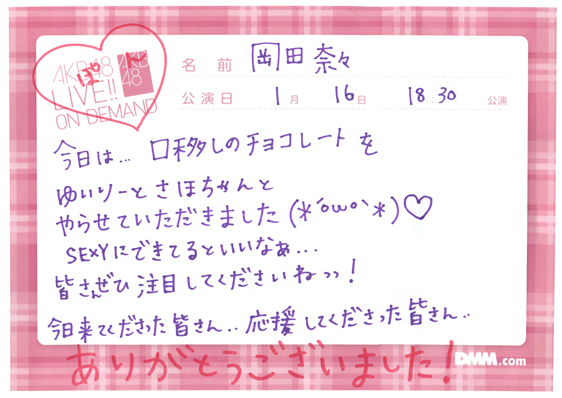 AKB48
LIVE!!
ON DEMAND
AKB
48
ぽ
名前 岡田奈々
公演日 1月 16日 18:30 公演
今日は... 口移しのチョコレートを
ゆいりーとさほちゃんと
やらせていただきました(*´ow`*)♡
SEXYにできてるといいなぁ...
皆さんぜひ注目してくださいねっっ!
今日来てくださった皆さん..応援してくださった皆さん..
ありがとうございました!
DMM.com